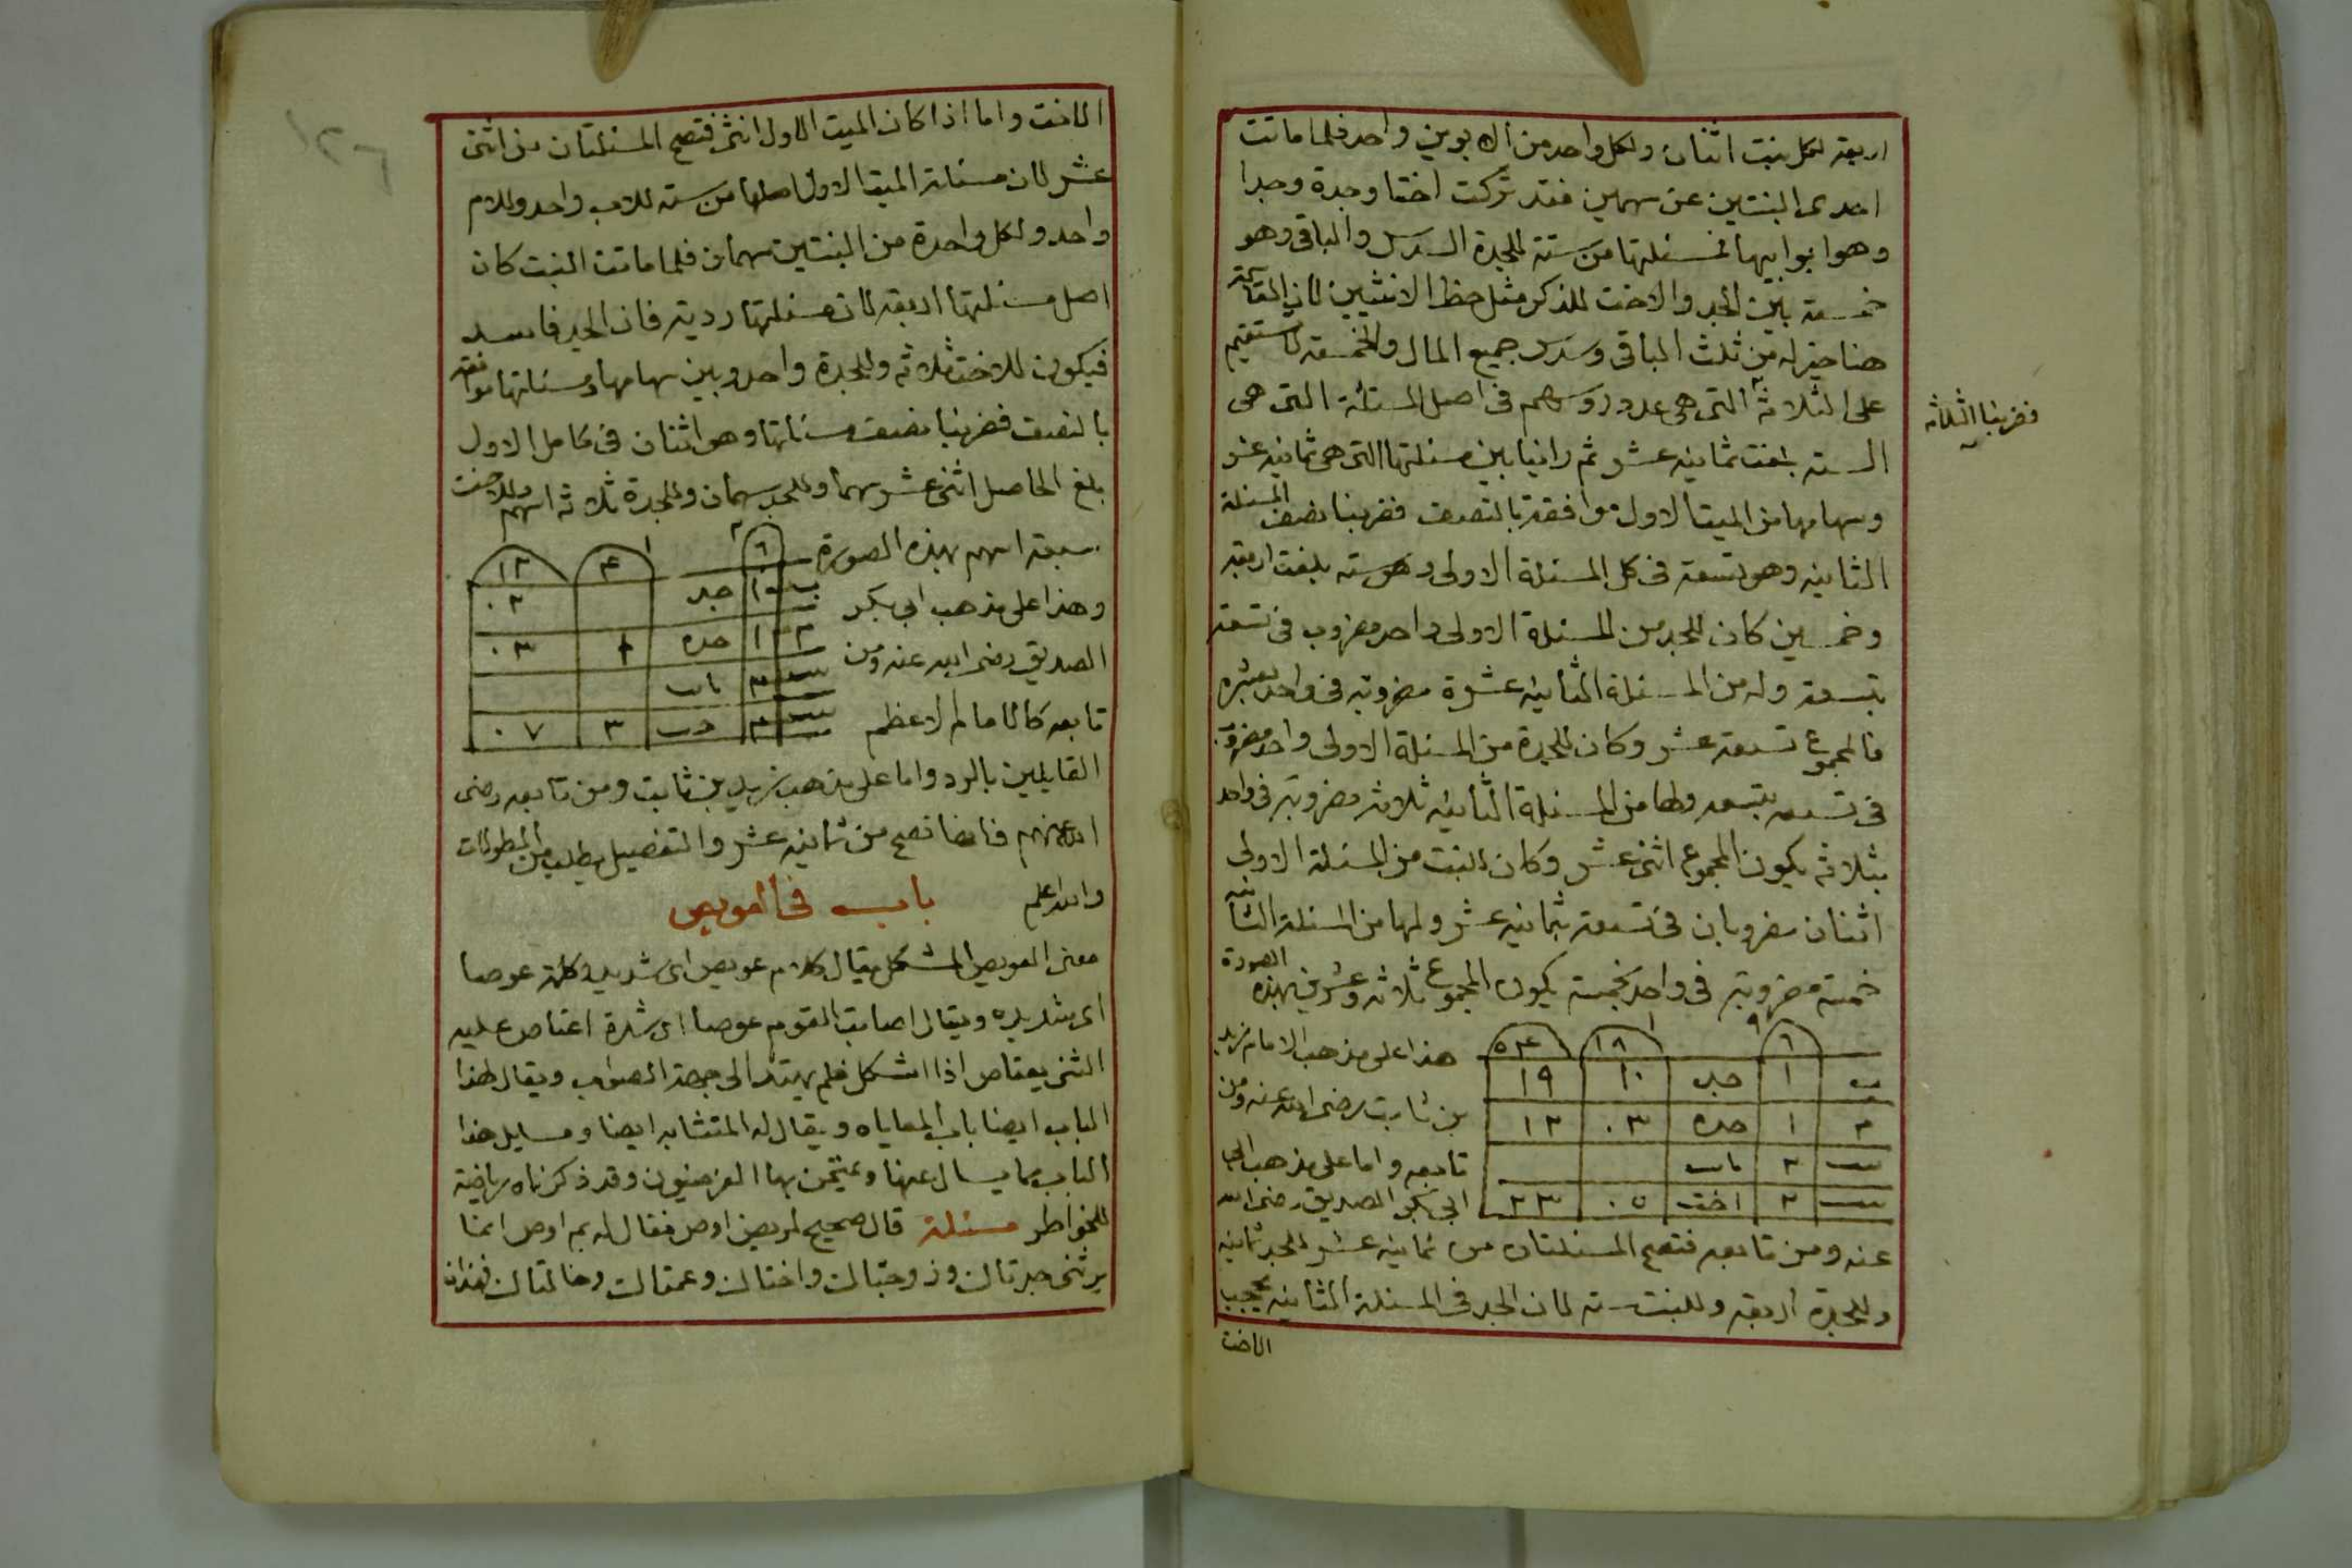 اربعة لكل بنت اثنان ولكل واحد من الابوين واحد فلما ماتت
احدى البنتين عن سهمين فقد تركت اختا وجدة وجدا
وهو ابو ابيها فمسئلتها من ستة للجدة السدس والباقي وهو
خمسة بين الجد والاخت للذكر مثل حظ الانثيين لان المقاسمة
هنا خير له من ثلث الباقي وسدس جميع المال والخمسة لا تستقيم
على الثلاثة التي هي عدد روسهم في اصل المسئلة التي هي
فضربنا الثلاثة
الستة بلغت ثمانية عشر ثم راينا بين مسئلتها التي هي ثمانية عشر
وسهامها من الميت الاول موافقة بالنصف فضربنا نصف المسئلة
الثانية وهو تسعة في كل المسئلة الاولى وهو ستة بلغت اربعة
وخمسين كان للجد من المسئلة الاولى واحد مضروب في تسعة
بتسعة وله من المسئلة الثانية عشرة مضروبة في واحد بعشرة
فالمجموع تسعة عشر وكان للجدة من المسئلة الاولى واحد مضروب
في تسعة بتسعة ولها من المسئلة الثانية ثلاثة مضروبة في واحد
بثلاثة يكون المجموع اثنى عشر وكان للبنت من المسئلة الاولى
اثنان مضروبان في تسعة بثمانية عشر ولها من المسئلة الثانية
خمسة مضروبة في واحد بخمسة يكون المجموع ثلاثة وعشرين بهذه الصورة
٦ ٩ ١٨ ١ ٥٤
ب ١ جد ١٠ ١٩
م ١ جده ٠٣ ١٢
بنت ٢ مات
بنت ٢ اخت ٠٥ ٢٣
هذا على مذهب الامام زيد
بن ثابت رضى الله عنه ومن
تابعه واما على مذهب
ابي بكر الصديق رضى الله
عنه ومن تابعه فتصح المسئلتان من ثمانية عشر للجد ثمانية
وللجدة اربعة وللبنت ستة لان الجد في المسئلة الثانية يحجب
الاخت
الاخت واما اذا كان الميت الاول انثى فتصح المسئلتان من اثنى
عشر لان مسئلة الميت الاول اصلها من ستة للاب واحد وللام
واحد ولكل واحدة من البنتين سهمان فلما ماتت البنت كان
اصل مسئلتها اربعة لان مسئلتها ردية فان الجد فاسد
فيكون للاخت ثلاثة وللجدة واحد وبين سهامها ومسئلتها موافقة
بالنصف فضربنا نصف مسئلتها وهو اثنان في كامل الاول
بلغ الحاصل اثنى عشر سهما وللجد سهمان وللجدة ثلاثة اسهم وللاخت
سبعة اسهم بهذه الصورة
وهذا على مذهب ابي بكر
الصديق رضى الله عنه ومن
تابعه كالامام الاعظم
٦ ٢ ٤ ١ ١٢
ب ١ جد ٠٢
م ١ جده ١ ٠٣
بنت ٢ مات
بنت ٢ ٣ ٠٧
القايلين بالرد واما على مذهب زيد بن ثابت ومن تابعه رضى
الله عنهم فانها تصح من ثمانية عشر والتفصيل يطلب من المطولات
والله اعلم باب في العويص
معنى العويص المشكل يقال كلام عويص اى شديد وكلمة عوصا
اى شديده ويقال اصابت القوم عوصا اى شدة اعتاص عليه
الشئ يعتاص اذا اشكل فلم يهتد الى جهة الصواب ويقال لهذا
الباب ايضا باب المعاياه ويقال له المتشابه ايضا ومسايل هذا
الباب مما يسال عنها ويمتحن بها الفرضيون وقد ذكرناه رياضة
للخواطر مسئلة قال صحيح لمريض اوص فقال له بم اوص انما
يرثنى جدتاك وزوجتاك واختاك وعمتاك وخالتاك